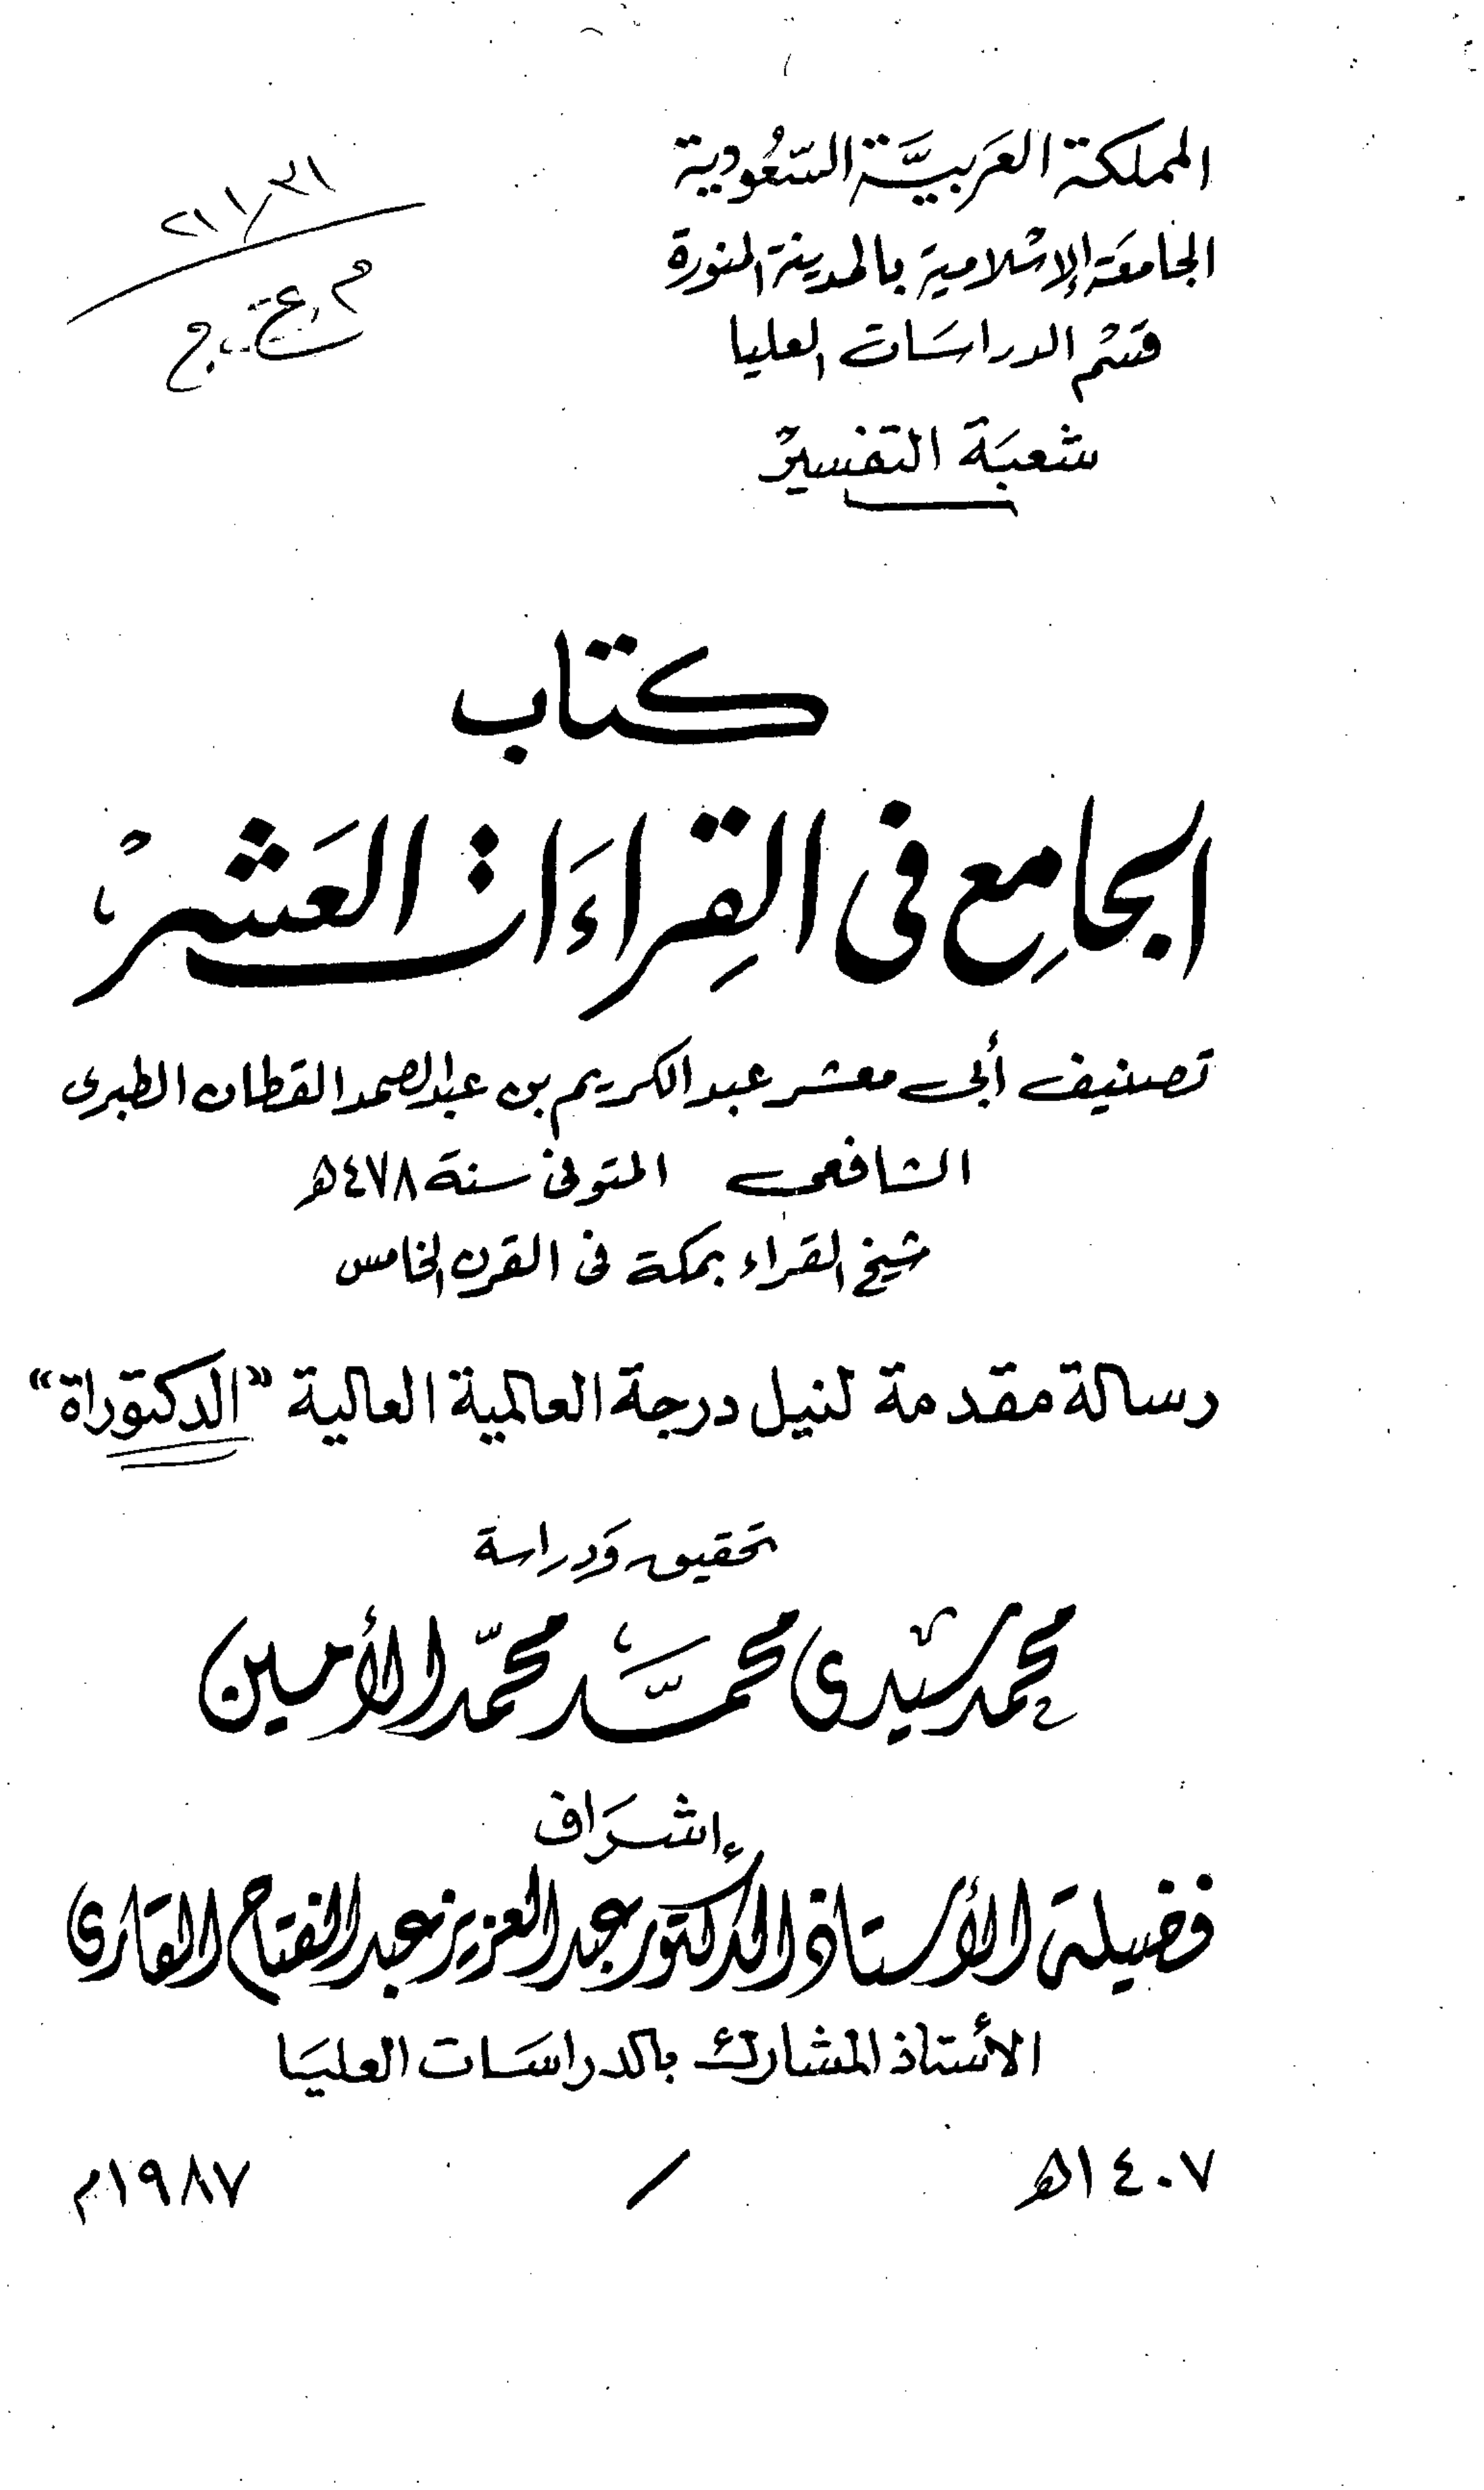 المملكة العَربيَّة السّعُودية
الجامعَة الإسْلامية بالمدينة المنورة
قسْم الدراسَات العليا
شعبَة التفسيرْ
كتاب
الجامِع فى القِراءَات العَشرْ
تصنيف أبى معشر عبد الكريم بن عبد الصمد القطان الطبرى
الشافعى المتوفى سنة ٤٧٨ه
شيخ القراء بمكة فى القرن الخامس
رسالة مقدمة لنيل درجة العالمية العالية "الدكتوراة"
تحقيق وَدراسة
محمد سيدى محمَّد محمّد الأمين
إشرَاف
فضيلة الأستاذ الدكتور عبد العزيز عبد الفتاح القارى
الأستاذ المشارك بالدراسَات العليَا
١٤٠٧ه / ١٩٨٧م